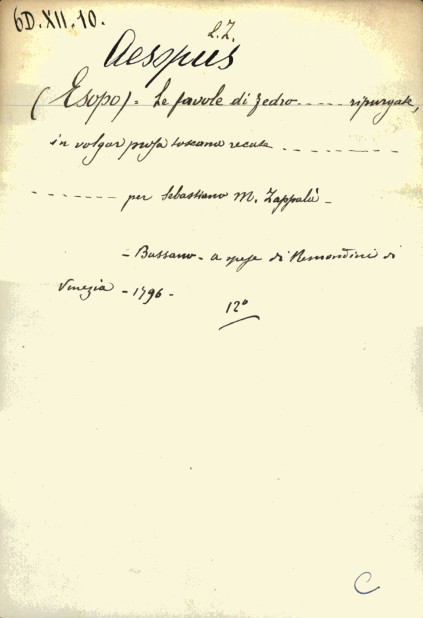 6D.XII.10.
L.I.
Aesopus
(Esopo) = Le favole di Fedro ..... ripurgate,
in volgar prosa toscana recate ----------
------- per Sebastiano M. Zappalà -
- Bassano - a spese di Remondini di
Venezia - 1796 -
12º
C